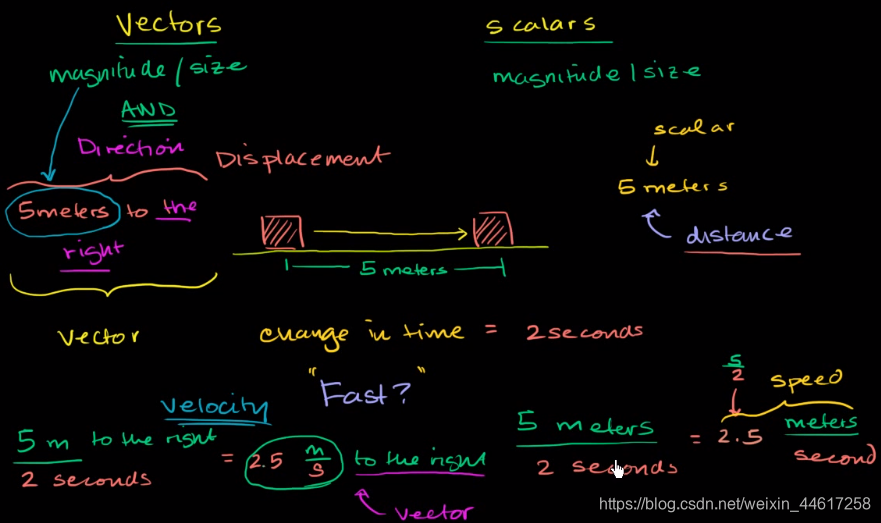 Vectors
scalars
magnitude / size
magnitude / size
AND
Direction
Displacement
scalar
5 meters
5 meters to the
right
distance
5 meters
vector
change in time = 2 seconds
"Fast?"
5
2
speed
velocity
5 m to the right
2 seconds
= 2.5 m
s
to the right
vector
5 meters
2 seconds
= 2.5 meters
second
https://blog.csdn.net/weixin_44617258